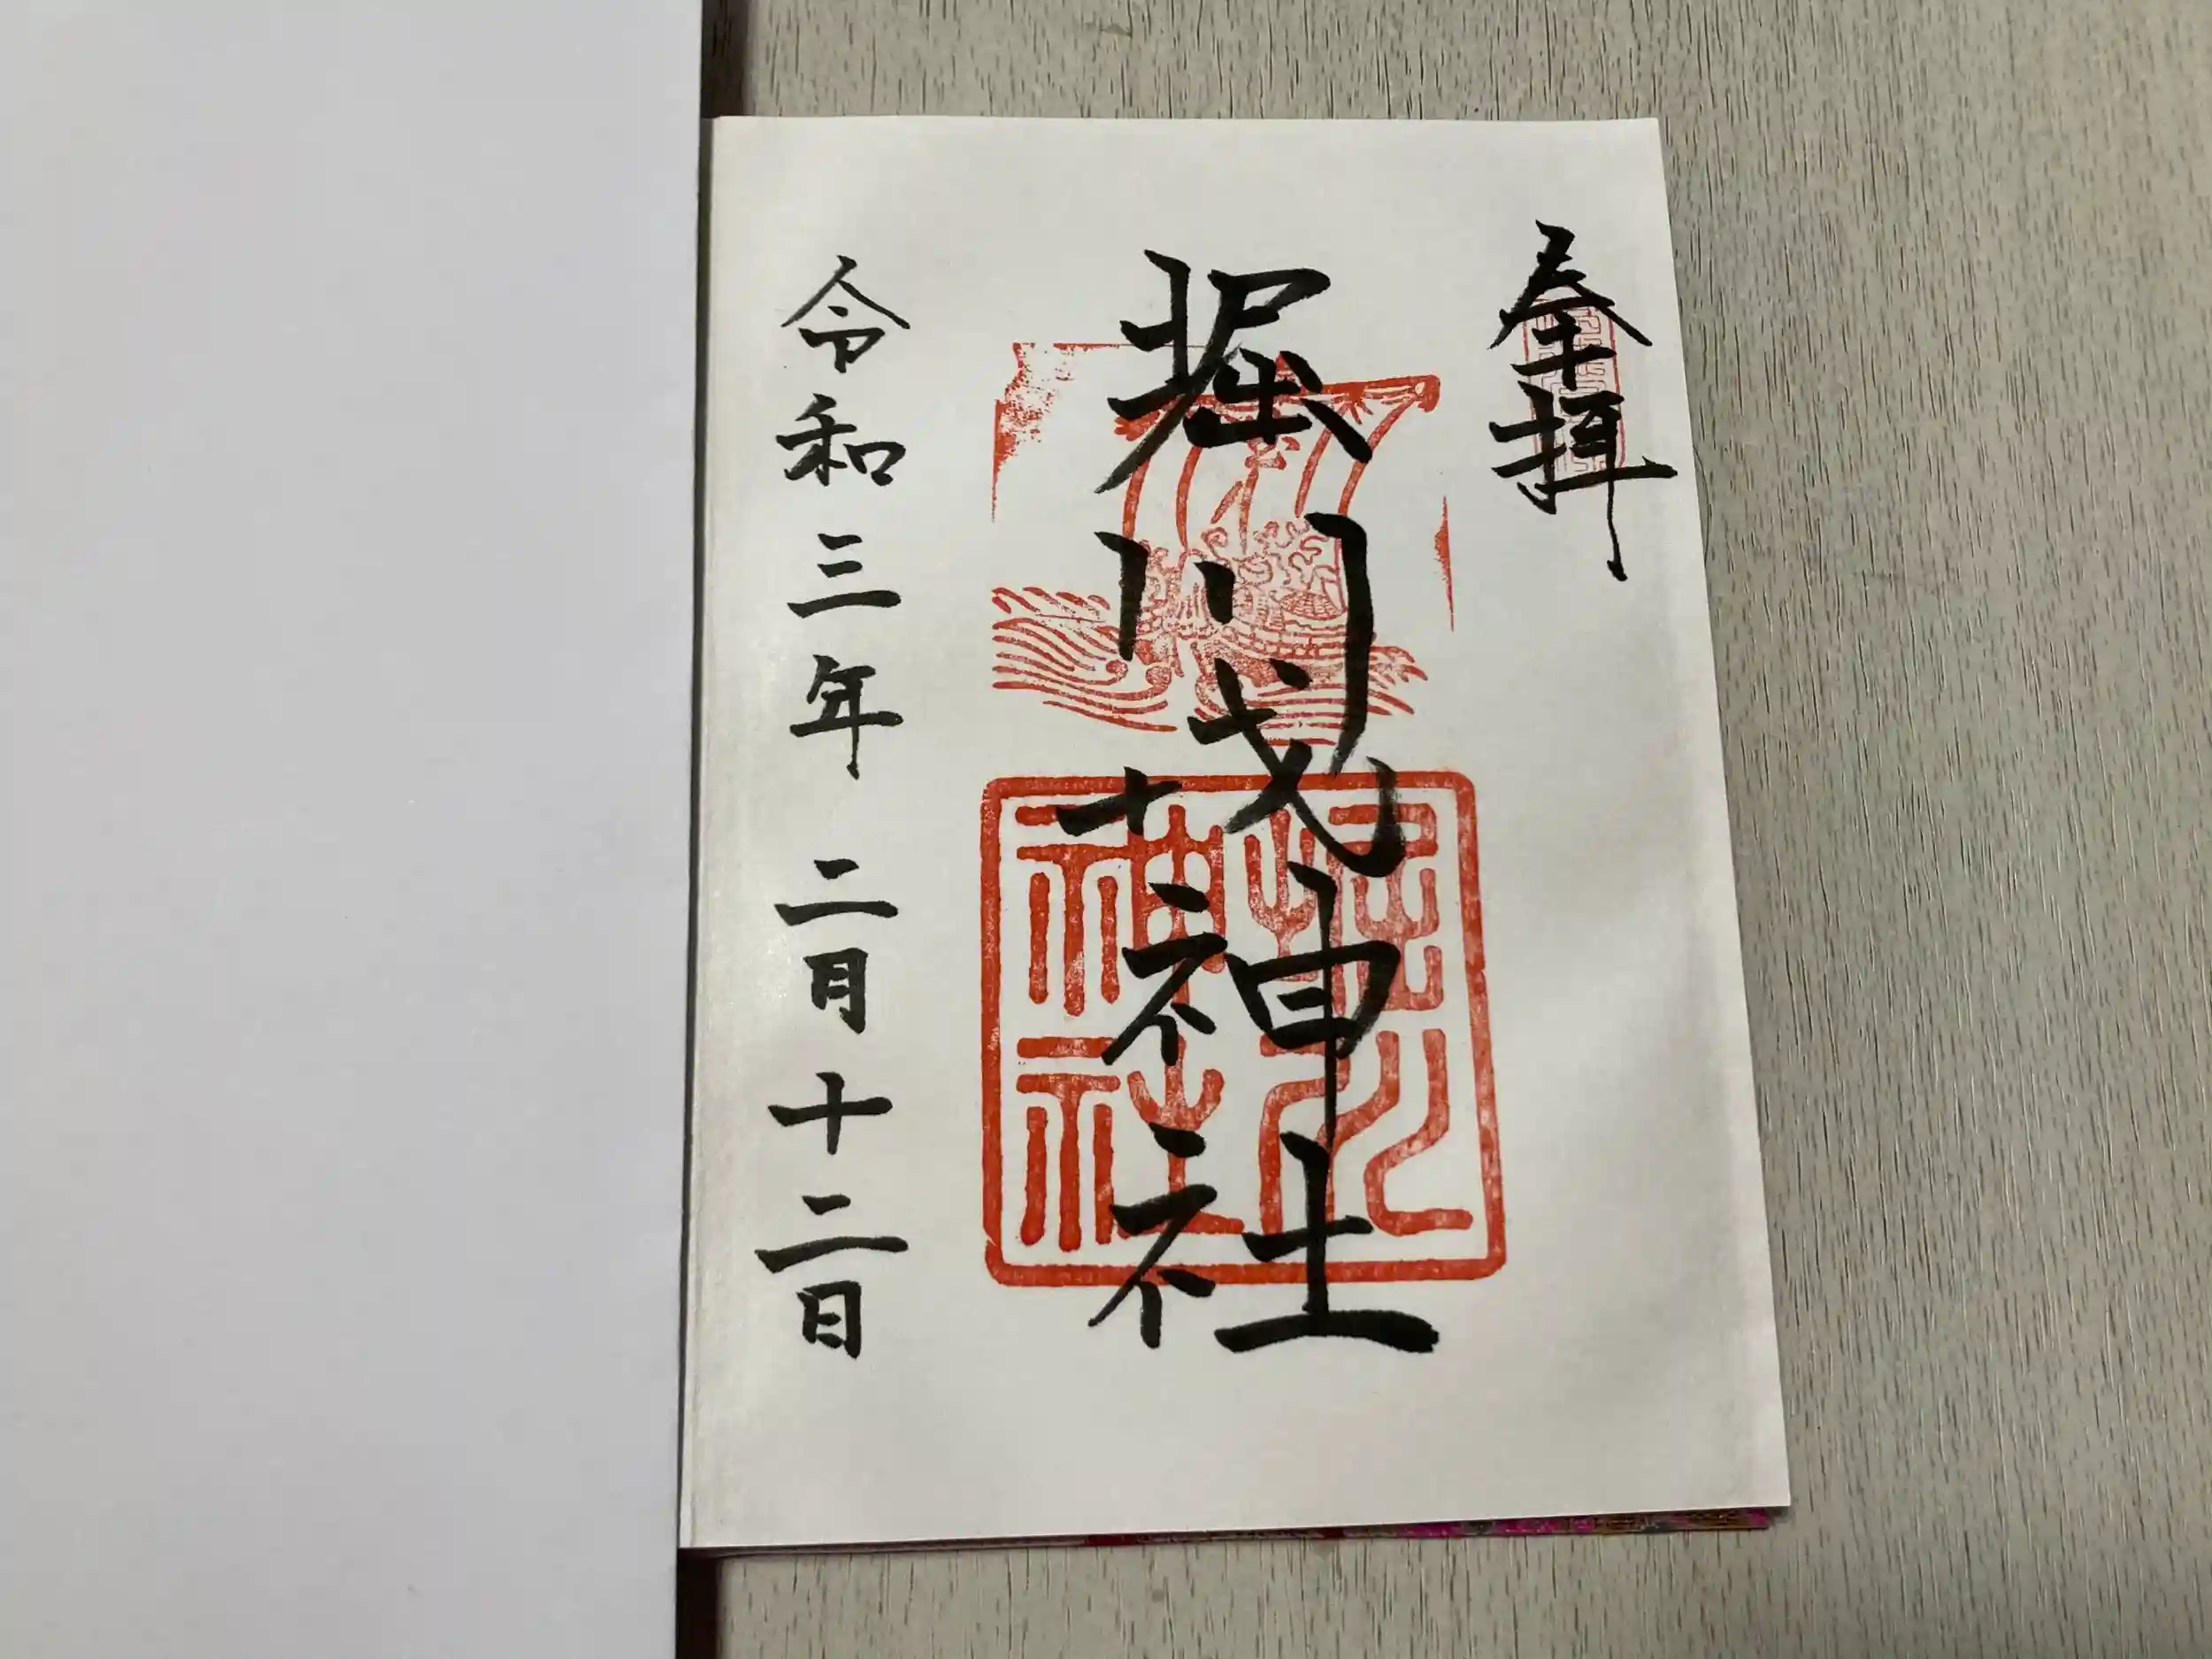 奉拝
堀川戎神社
堀川
神社
令和三年 二月十二日